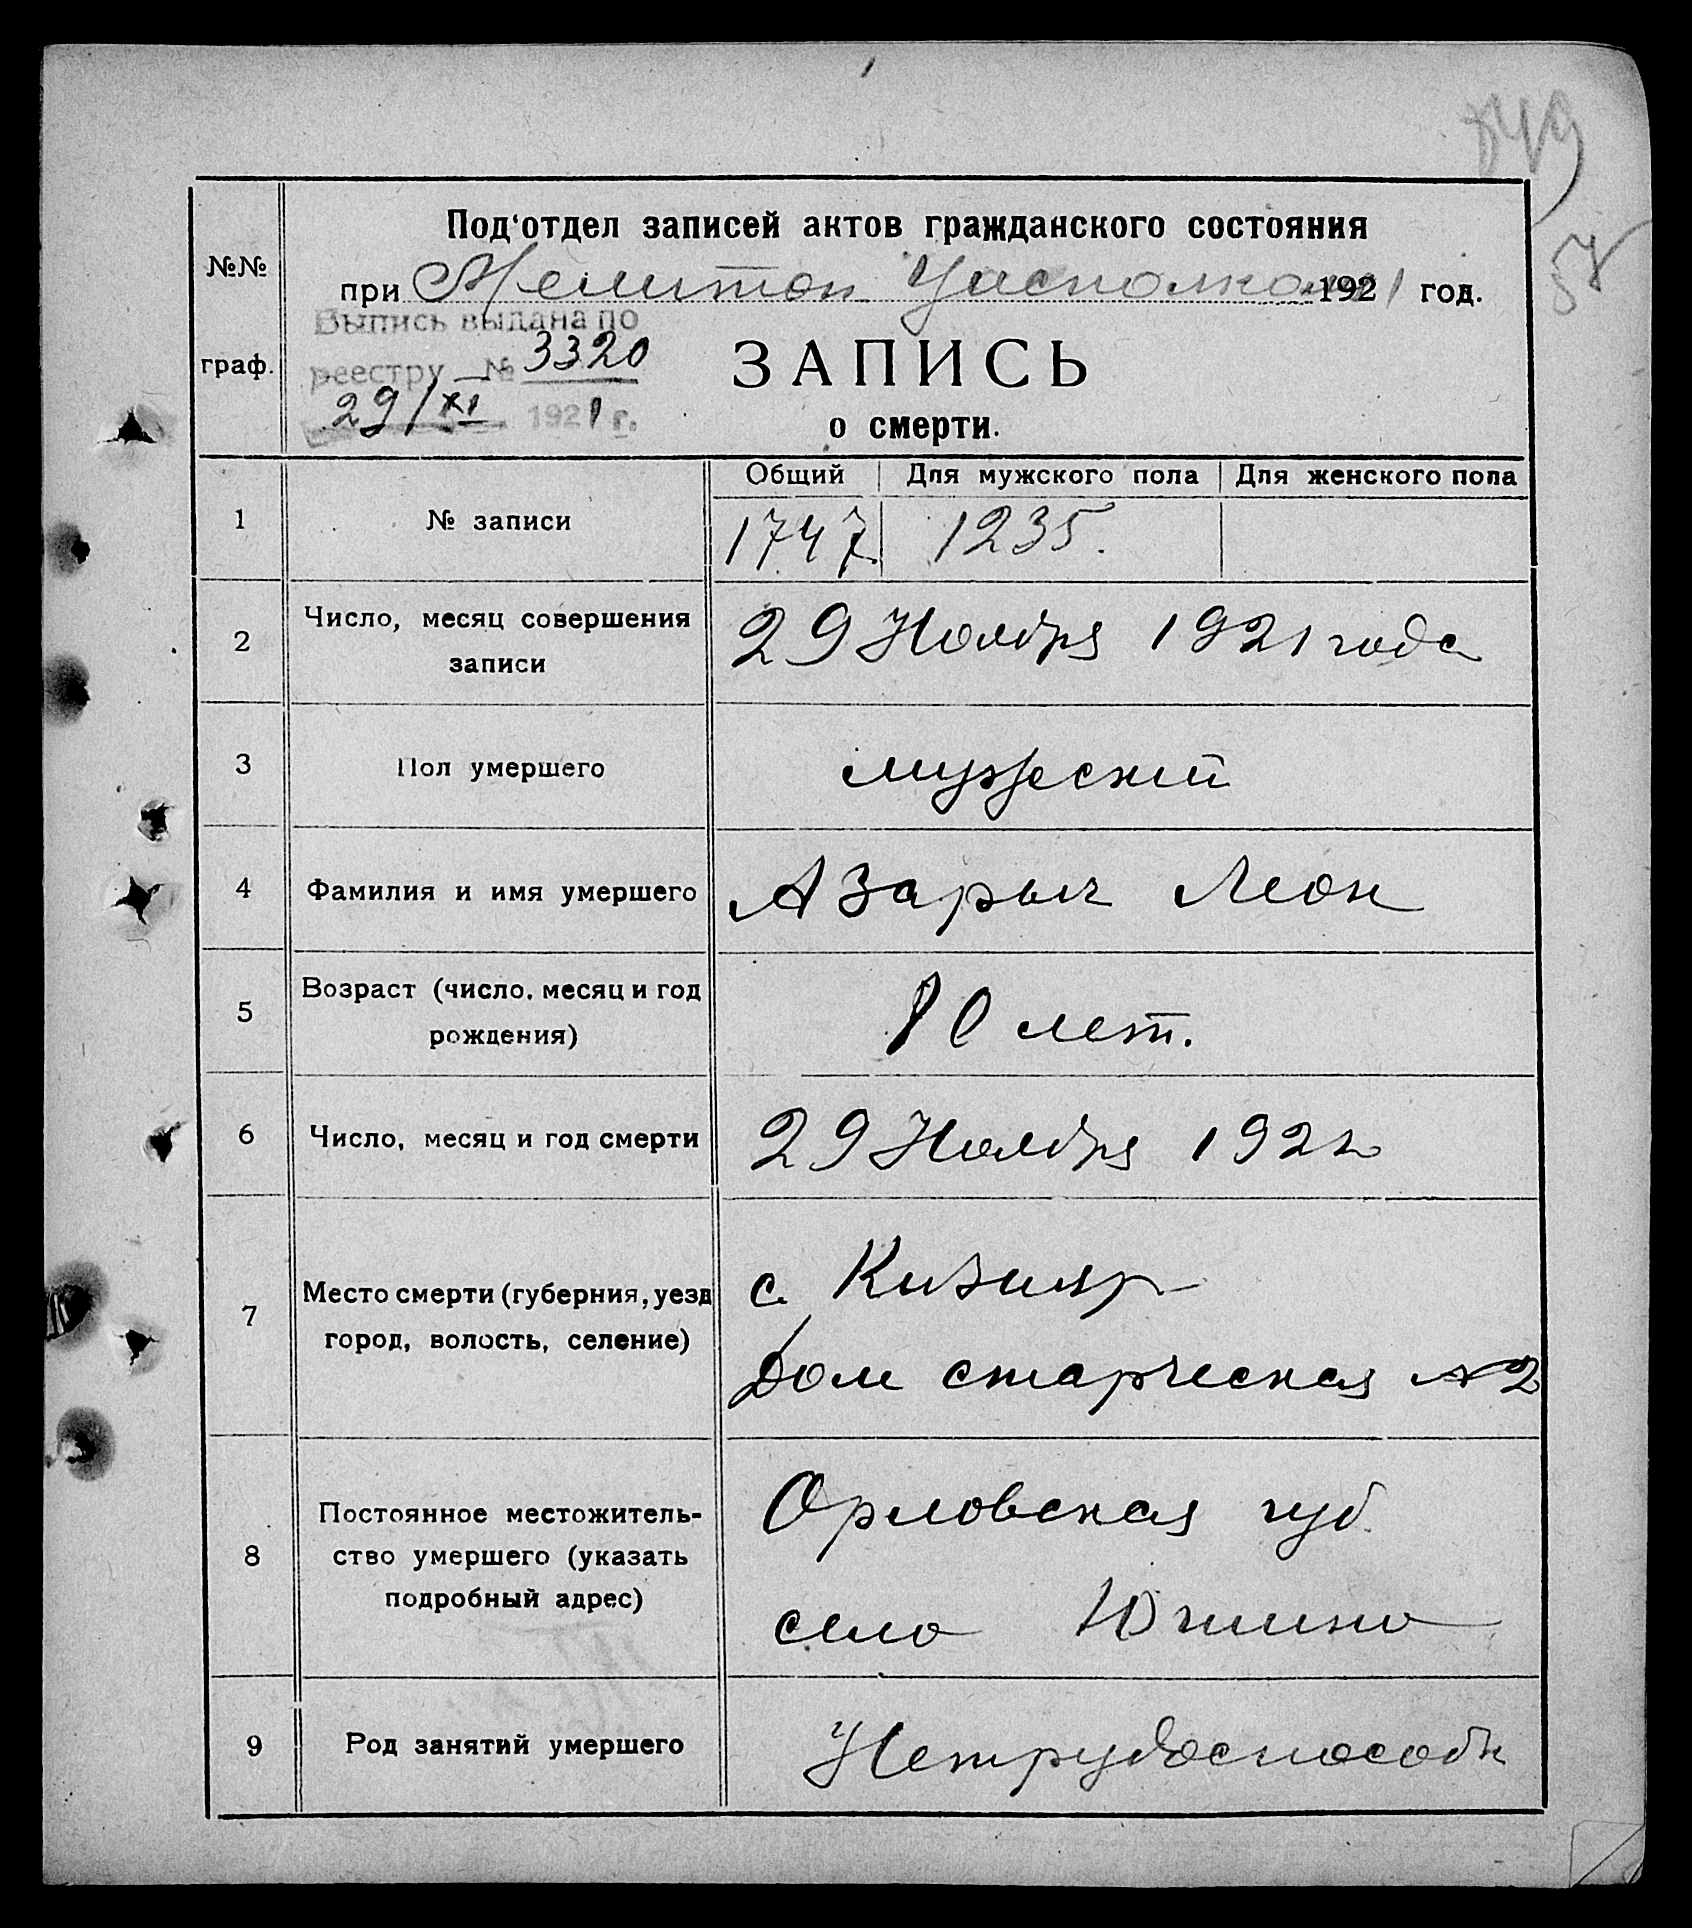 849
58
№№
граф.
Под'отдел записей актов гражданского состояния
при Мелитоп Уисполком 1921 год.
Выпись выдана по
реестру № 3320
29/XI 1921 г.
ЗАПИСЬ
о смерти.
Общий Для мужского пола Для женского пола
1 № записи 1747 1235.
2 Число, месяц совершения
записи
29 Ноября 1921 года
3 Пол умершего мужеский
4 Фамилия и имя умершего Азарыч Леон
5 Возраст (число, месяц и год
рождения)
80 лет.
6 Число, месяц и год смерти 29 Ноября 1921 г
7 Место смерти (губерния, уезд
город, волость, селение)
с. Кизияр
Дом старческая №2
8 Постоянное местожитель-
ство умершего (указать
подробный адрес)
Орловская губ.
село
9 Род занятий умершего Нетрудоспособн